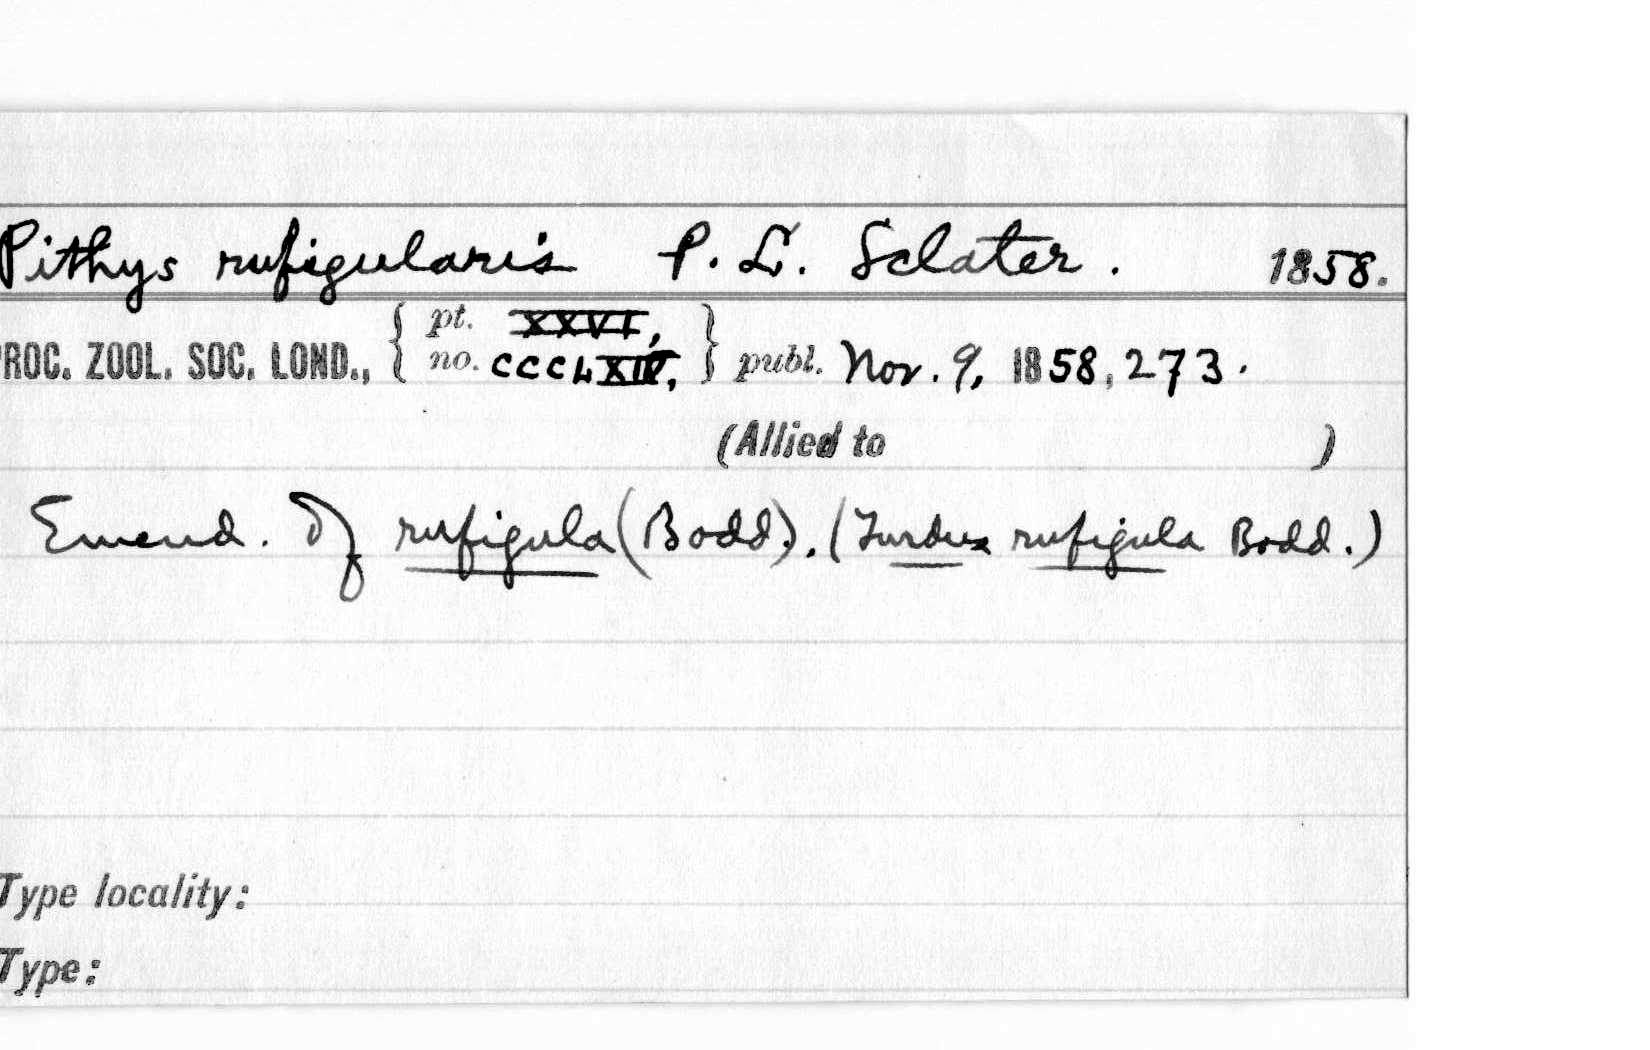 Pithys rufigularis P. L. Sclater. 1858.
PROC. ZOOL. SOC. LOND., { pt. XXVI, no. CCCLXIV, } publ. Nov. 9, 1858, 273.
(Allied to )
Emend. of rufigula (Bodd). (Turdus rufigula Bodd.)
Type locality:
Type: